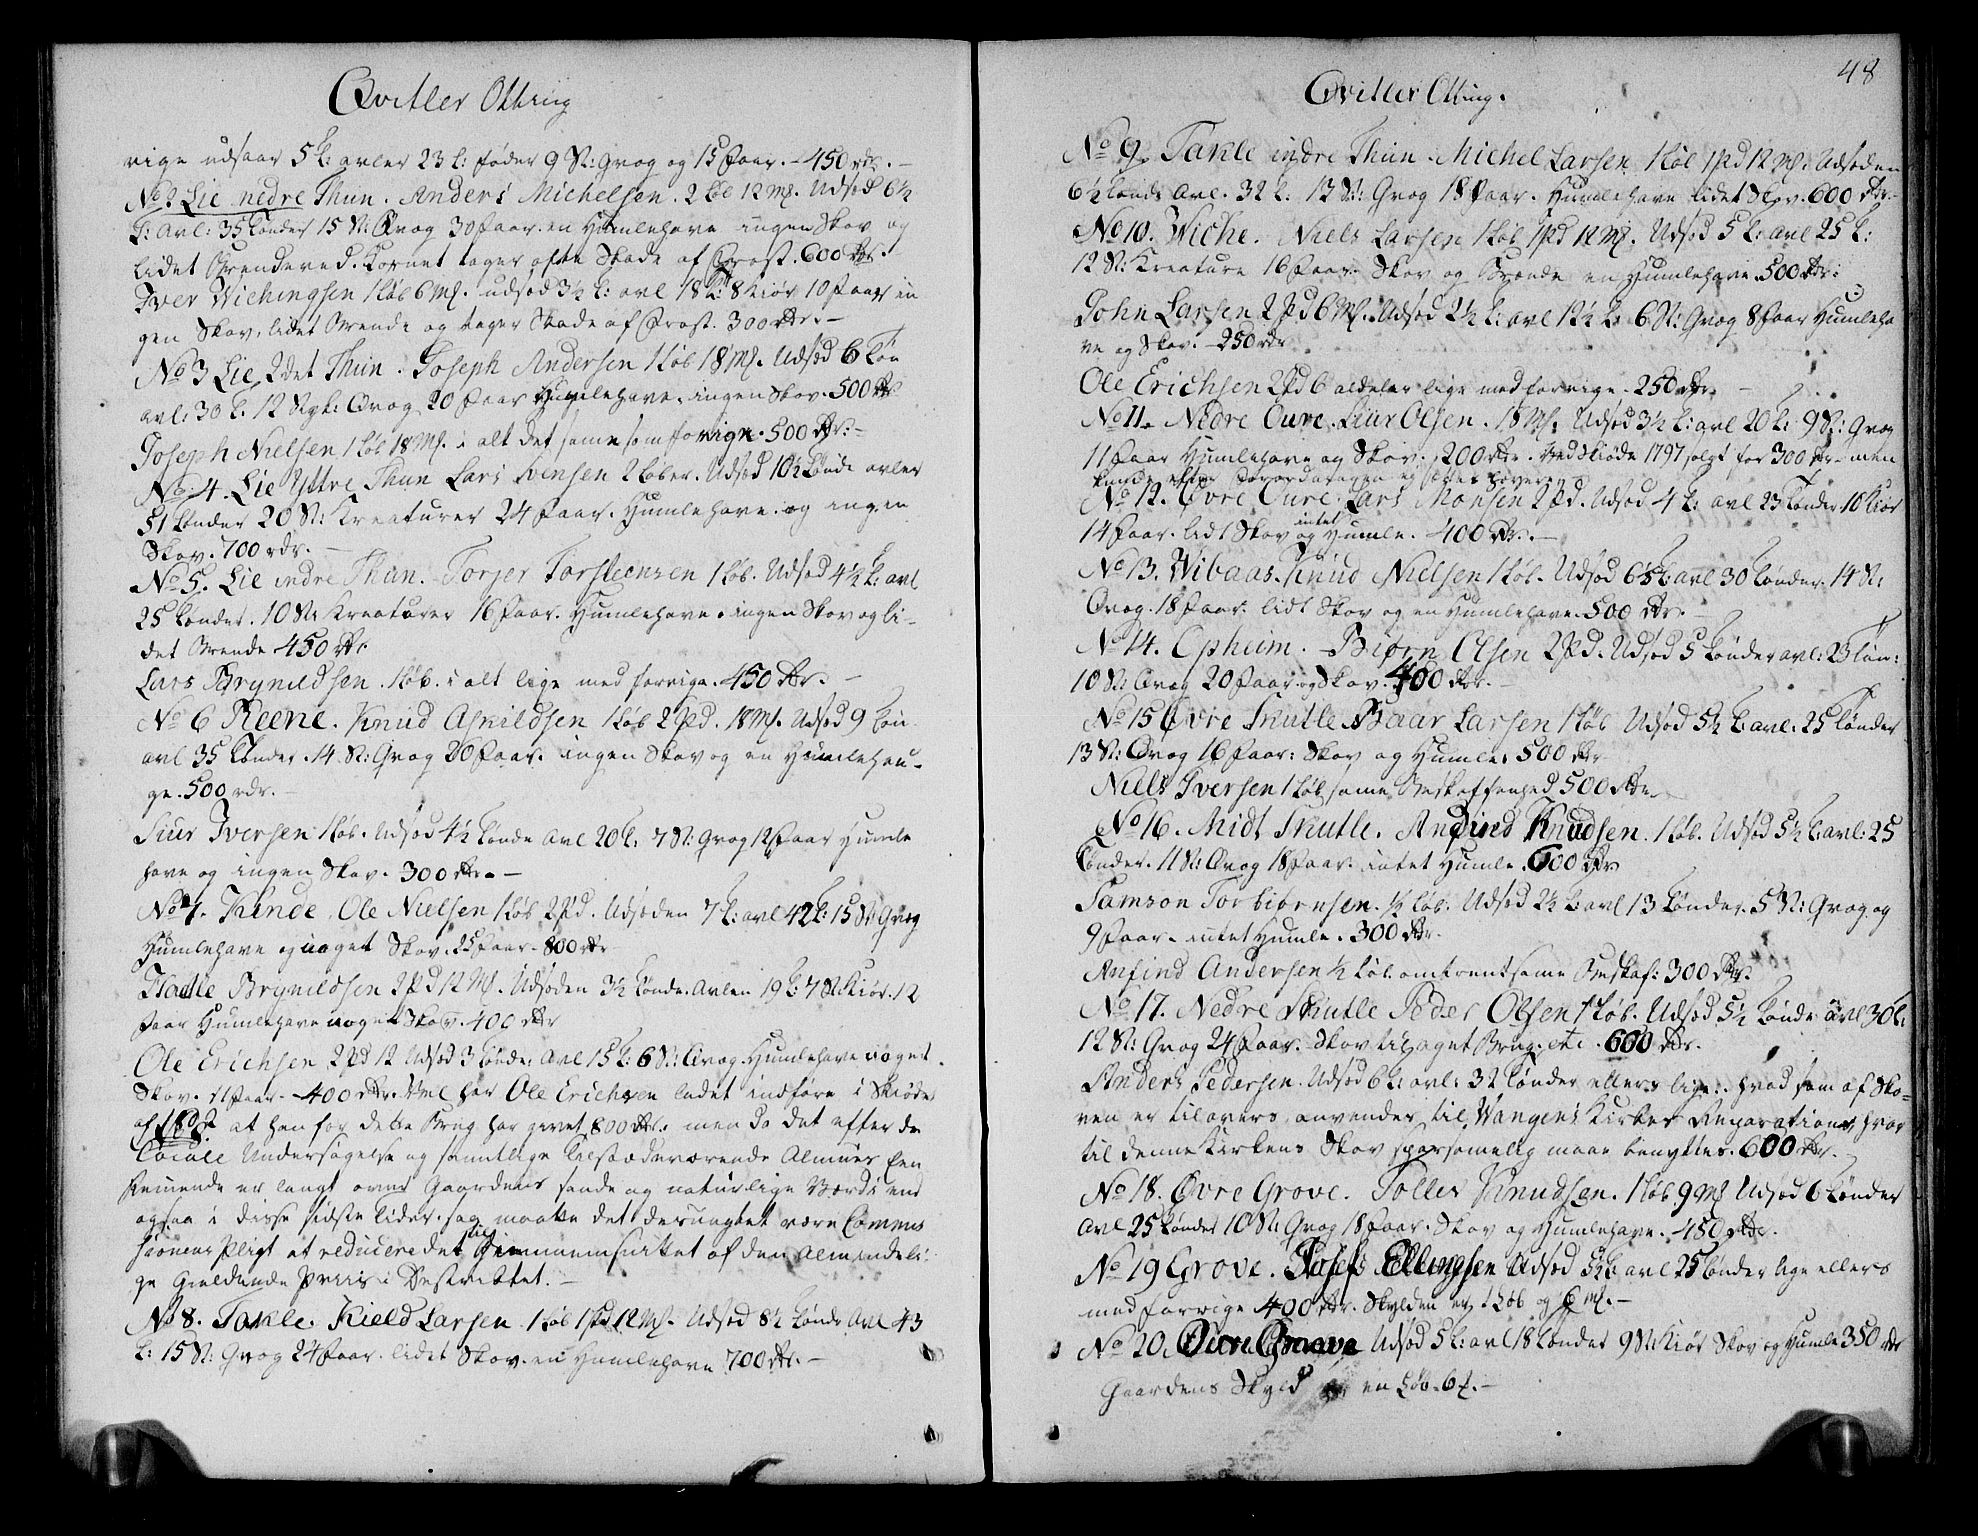 Qvitler Ottring
rige udsaar 5 t: avler 23 t: føder 9 St: Qvæg og 15 Faar. - 450 rdr. -
No 2 Lie nedre Thun. Anders Michelsen. 2 Løb 12 Mk. Udsæd 6½
t: avl: 35 tønder 15 St: Qvæg 30 Faar. en Humlehave ingen Skov og
lidet Brendeved. Kornet tager ofte Skade af Frost. 600 Rdr.
Iver Wichingsen 1 Løb 6 Mk. udsæd 3½ t: avl 18 t: 8 Kiør 10 Faar in
gen Skov, lidet Brende og tager Skade af Frost. 300 Rdr. -
No 3 Lie 2det Thun. Joseph Andersen 1 Løb 18 Mk. Udsæd 6 tøn
avl: 30 t. 12 Styk: Qvæg 20 Faar Humlehave. ingen Skov. 500 Rdr
Joseph Nielsen 1 Løb 18 Mk. i alt det same som forrige. 500 Rdr. -
No. 4. Lie Yttre Thun Lars Svensen 2 Løber. Udsæd 10½ tønde avler
51 tønder 20 St: Kreaturer 24 Faar. Humlehave og ingen
Skov. 700 rdr. -
No 5. Lie indre Thun. Torger Torsteensen 1 Løb. Udsæd 4½ t: avl
25 tønder. 10 St: Kreaturer 16 Faar. Humlehave. ingen Skov og li-
det Brende 450 Rdr
Lars Brynildsen. 1 Løb. i alt lige med forrige. 450 Rdr. -
No 6 Reene. Knud Askildsen 1 Løb 2 Pd. 18 Mk. Udsæd 9 tøn.
avl 35 tønder. 14 St: Qvæg 20 Faar. ingen Skov og en Humlehau-
ge. 500 rdr. -
Siur Iversen 1 Løb. Udsæd 4½ tønde avl 20 t: 7 St: Qvæg 12 Faar Humle
have og ingen Skov. 300 Rdr. -
No 7. Kinde. Ole Nielsen 1 Løb 2 Pd. Udsæden 7 t: avl 42 t: 15 St Qvæg
Humlehave og noget Skov. 25 Faar. 800 Rdr
Brynildsen 2 Pd 12 M. Udsæden 3½ tønde. Avlen 19 t: 7 St Kiør. 12
Faar Humlehave noget Skov. 400 Rdr
Ole Erichsen 2 Pd 12 Udsæd 3 tønde: Avl 15 t: 6 St: Qvæg. Humlehave noget
Skov. 11 Faar. - 400 Rdr. Vel har Ole Erichsen ladet indføre i Skiøde
af at han for dette Brug har givet 800 Rdr. men da det efter de
Locale Undersøgelse og samtlige tilstædeværende Almues Een
kiennende er langt over Gaardens sande og naturlige Værdi end
ogsaa i disse sidste tider. saa maatte det desuagtet være Commis
sionens Pligt at reducere det til Giennemsnittet af den almindeli-
ge Gieldende Priis i Destrictet. -
No 8. Takle. Kield Larsen. 1 Løb 1 Pd 12 Mk. Udsæd 8½ tønde Avl 43
t: 15 St: Qvæg 24 Faar. lidet Skov. en Humlehave 700 Rdr. -
48
Qvitler Ottring.
No 9. Takle indre Thun. Michel Larsen 1 Løb 1 Pd 12 Mk. Udsæden
6½ tønde Avl. 32 t. 12 St: Qvæg 18 Faar. Humlehave lidet Skov. 600 Rdr. -
No 10. Wiche. Niels Larsen 1 Løb 1 Pd 12 Mk. Udsæd 5 t: avl 25 t:
12 St: Kreature 16 Faar. Skov og Brænde en Humlehave. 500 Rdr:
John Larsen 2 Pd 6 Mk. Udsæd 2½ t: avl 12½ t: 6 St: Qvæg 8 Faar Humleha
ve og Skov. - 250 rdr
Ole Erichsen 2 Pd 6 aldeles lige med forrige. 250 Rdr. -
No 11. Nedre Oure. Siur Olsen. 18 Mk. Udsæd 3½ t: avl 20 t: 9 St: Qvæg
11 Faar Humlehave og Skov. 200 Rdr. Ved Skiøde 1797 solgt for 300 Rdr. men
No 12. Øvre Oure. Lars Monsen 2 Pd. Udsæd 4 t: avl 23 tønder 10 Kiør
14 Faar. lidt Skov og intet Humle. 400 Rdr. -
No 13. Wibaas. Knud Nielsen 1 Løb. Udsæd 6½ t: avl 30 tønder. 14 St:
Qvæg. 18 Faar. lidt Skov og en Humlehave. 500 Rdr. -
No 14. Opheim. Biørn Olsen 2 Pd. Udsæd 5 tønder avl: 23 tøn:
10 St: Qvæg 20 Faar og Skov. 400 Rdr. -
No 15 Øvre Skutle Baar Larsen 1 Løb Udsæd 5½ t: avl: 25 tønder
13 St: Qvæg 16 Faar: Skov og Humle. 500 Rdr
Niels Iversen 1 Løb. same Beskaffenhed 500 Rdr. -
No 16. Midt Skutle. Anfind Knudsen. 1 Løb. Udsæd 5½ t: avl: 25
tønder. 11 St: Qvæg 18 Faar. intet Humle. 600 Rdr
Samson Torbiørnsen. ½ Løb. Udsæd 2½ t: avl 13 tønder. 5 St: Qvæg og
9 Faar. intet Humle. 300 Rdr.
Anfind Andersen ½ Løb. omtrent same Beskaf: 300 Rdr.
No 17. Nedre Skutle Peder Olsen 1 Løb. Udsæd 5½ tønde avl 30 t:
12 St: Qvæg 24 Faar. Skov til eget Brug. etc. 600 Rdr.
Anders Pedersen. Udsæd 6 t: avl: 32 tønder ellers lige. hvad som af Sko-
ven er tilovers, anvendes til Wangens Kirkes Reparationer, hvor
til denne Kirkens Skov sparsomelig maae benyttes. 600 Rdr.
No 18. Øvre Grove. Tolles Knudsen. 1 Løb 9 Mk Udsæd 6 tønder
avl 25 tønder 10 St: Qvæg 18 Faar. Skov og Humlehave. 450 Rdr.
No 19 Grove. Josef Ellingsen Udsæd 5½ t. avl 25 tønder lige ellers
med forrige 400 Rdr. Skylden er 1 Løb og 6 Mk. -
No 20. Øvre Graeve Udsæd 5 t: avl 18 tønder 9 St: Kiør Skov og Humle 350 rdr
Gaardens Skyld er en Løb. 6